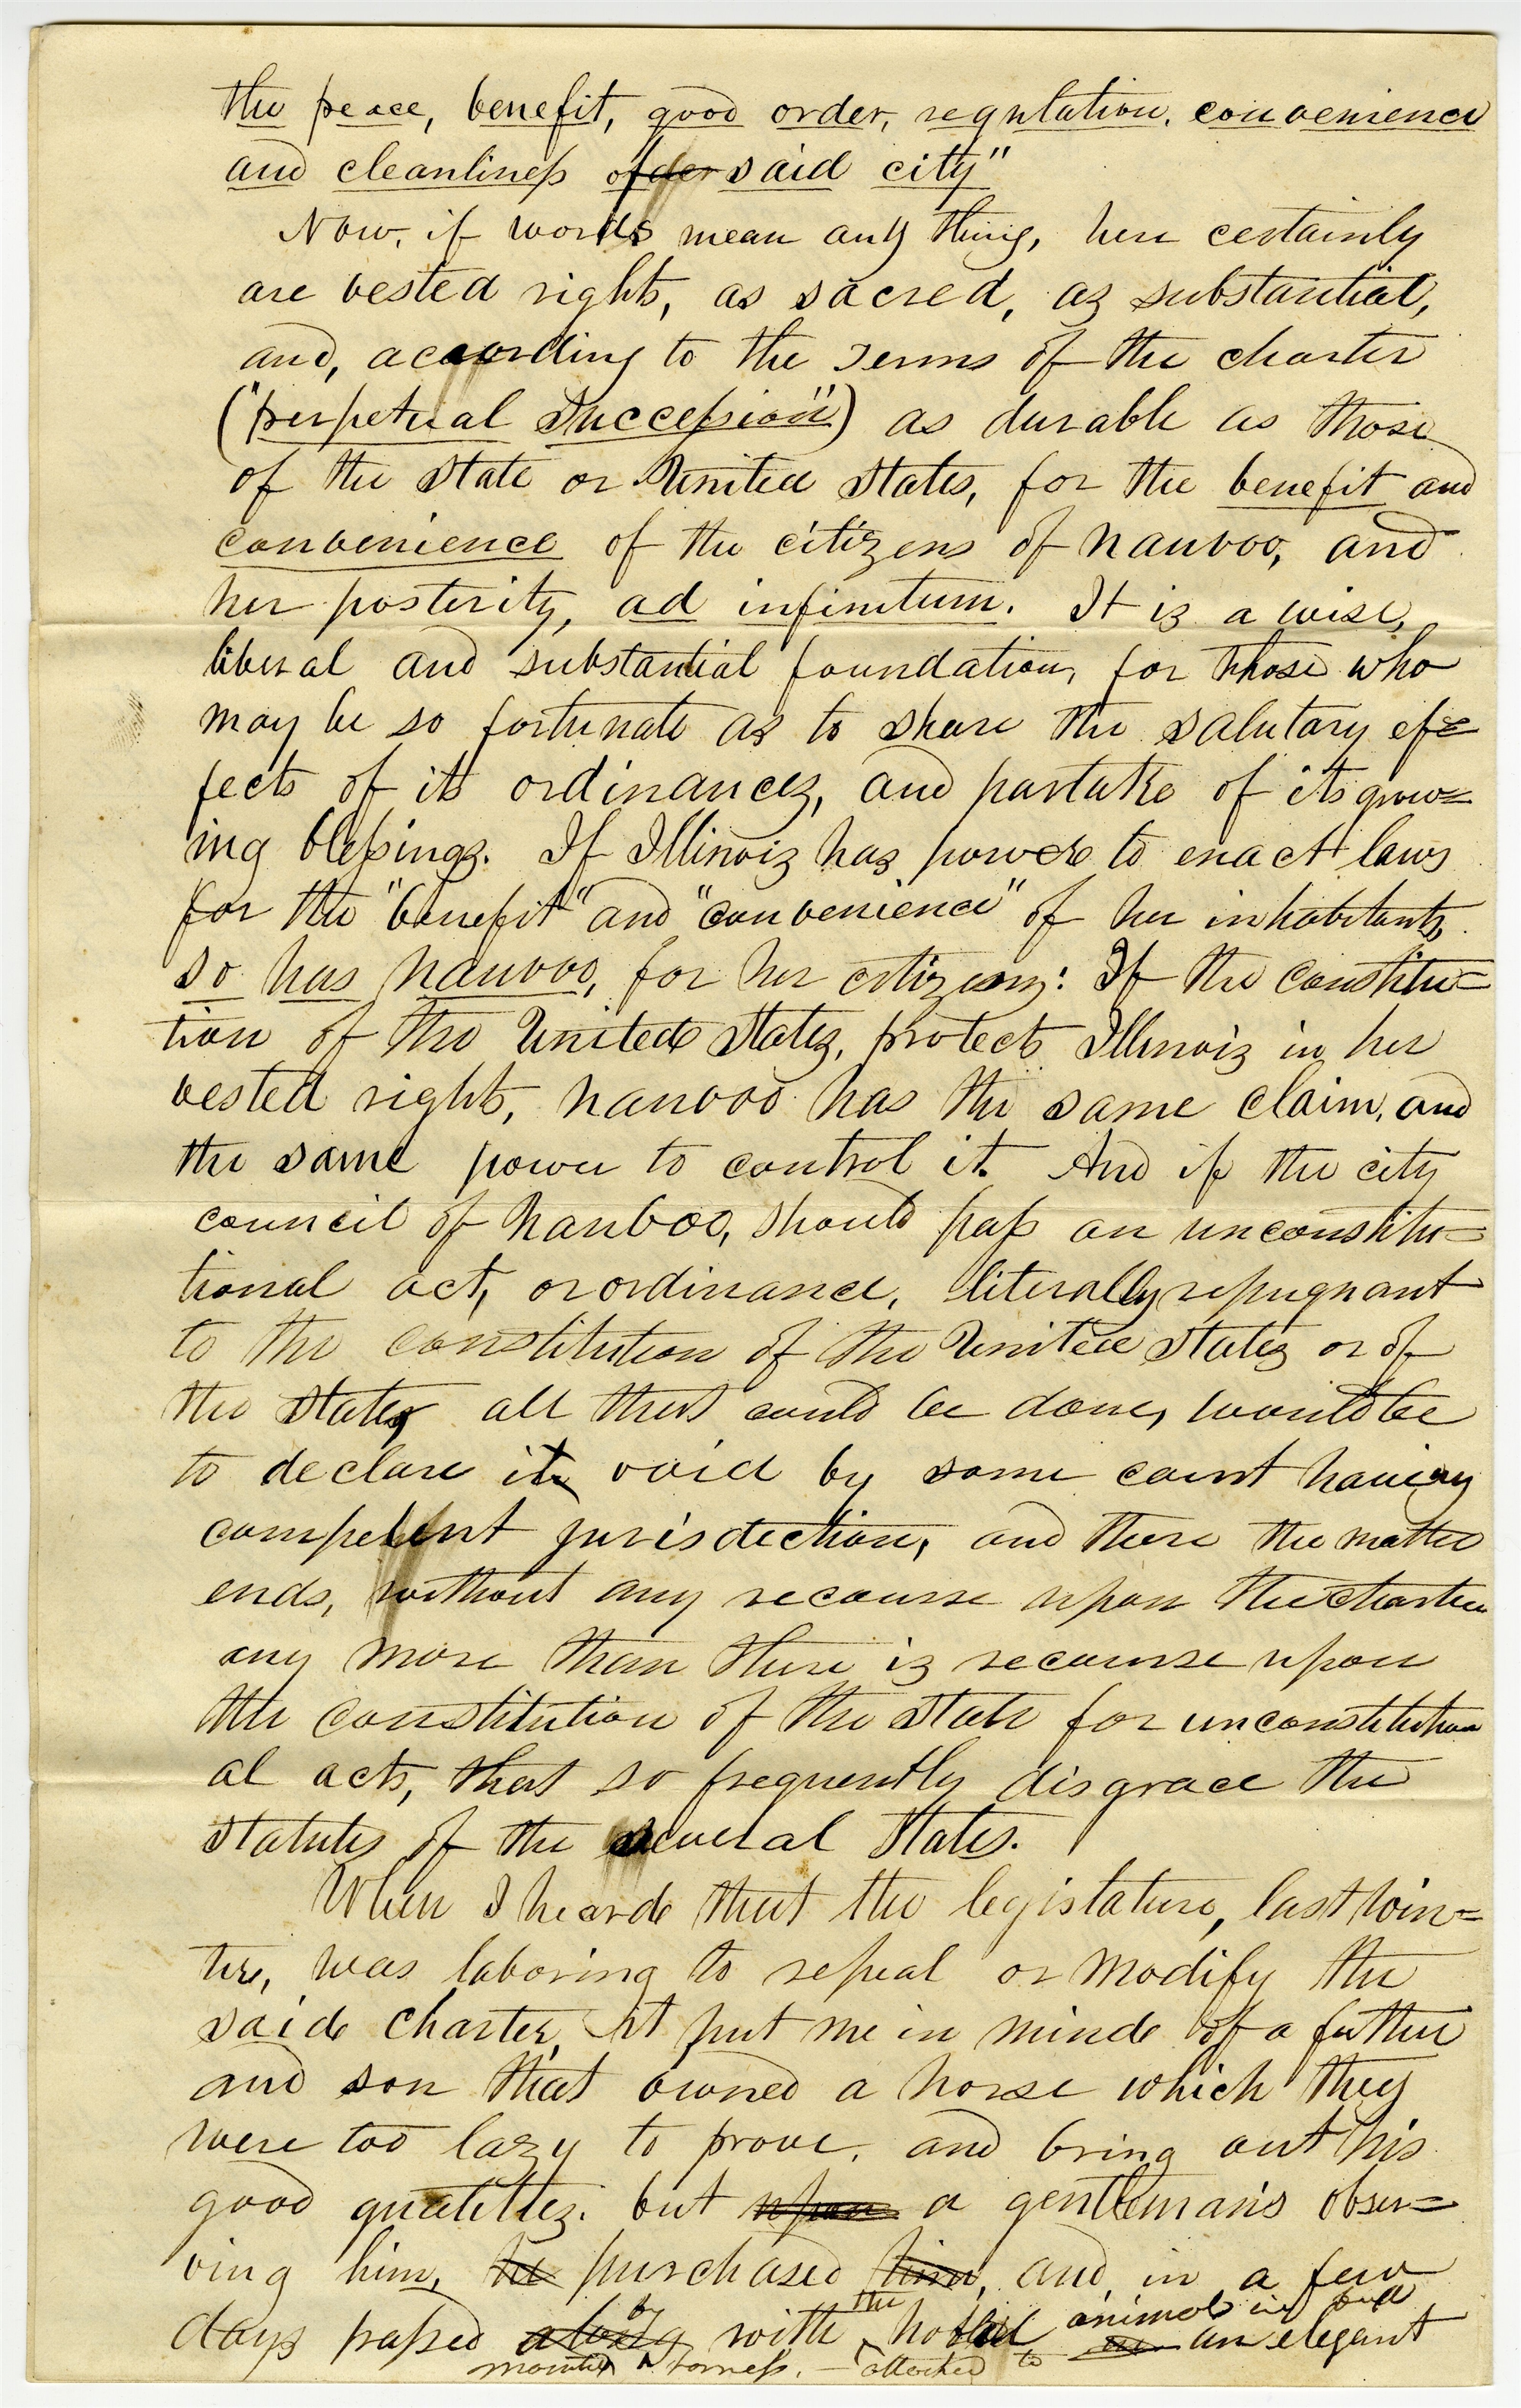 the peace, benefit, good order, regulation, convenience
and cleanliness of der said city"
Now, if words mean any thing, here certainly
are vested rights, as sacred, as substantial,
and, according to the terms of the charter
("perpetual succession") as durable as those
of the State or United States, for the benefit and
convenience of the citizens of Nauvoo, and
her posterity, ad infinitum. It is a wise,
liberal and substantial foundation, for those who
may be so fortunate as to share the salutary ef=
fects of its ordinances, and partake of its grow=
ing blessings. If Illinois has power to enact laws
for the "benefit" and "convenience" of her inhabitants,
so has Nauvoo, for her citizens: If the constitu=
tion of the United States, protects Illinois in her
vested rights, Nauvoo has the same claim, and
the same power to control it. And if the city
council of Nauvoo, should pass an unconstitu=
tional act, or ordinance, literally repugnant
to the constitution of the United States or of
the State, all that could be done, would be
to declare it void by some court having
competent jurisdiction, and there the matter
ends, without any recourse upon the charter
any more than there is recourse upon
the constitution of the State for unconstitution
al acts, that so frequently disgrace the
statutes of the several States.
When I heard that the legislature, last win=
ter, was laboring to repeal or modify the
said charter, it put me in mind of a father
and son that owned a horse which they
were too lazy to prove, and bring out his
good qualities. but upon a gentleman's obser=
ving him, he purchased him, and, in a few
days passed along by with the noble animal in full
mounted harness, – attached to an elegant